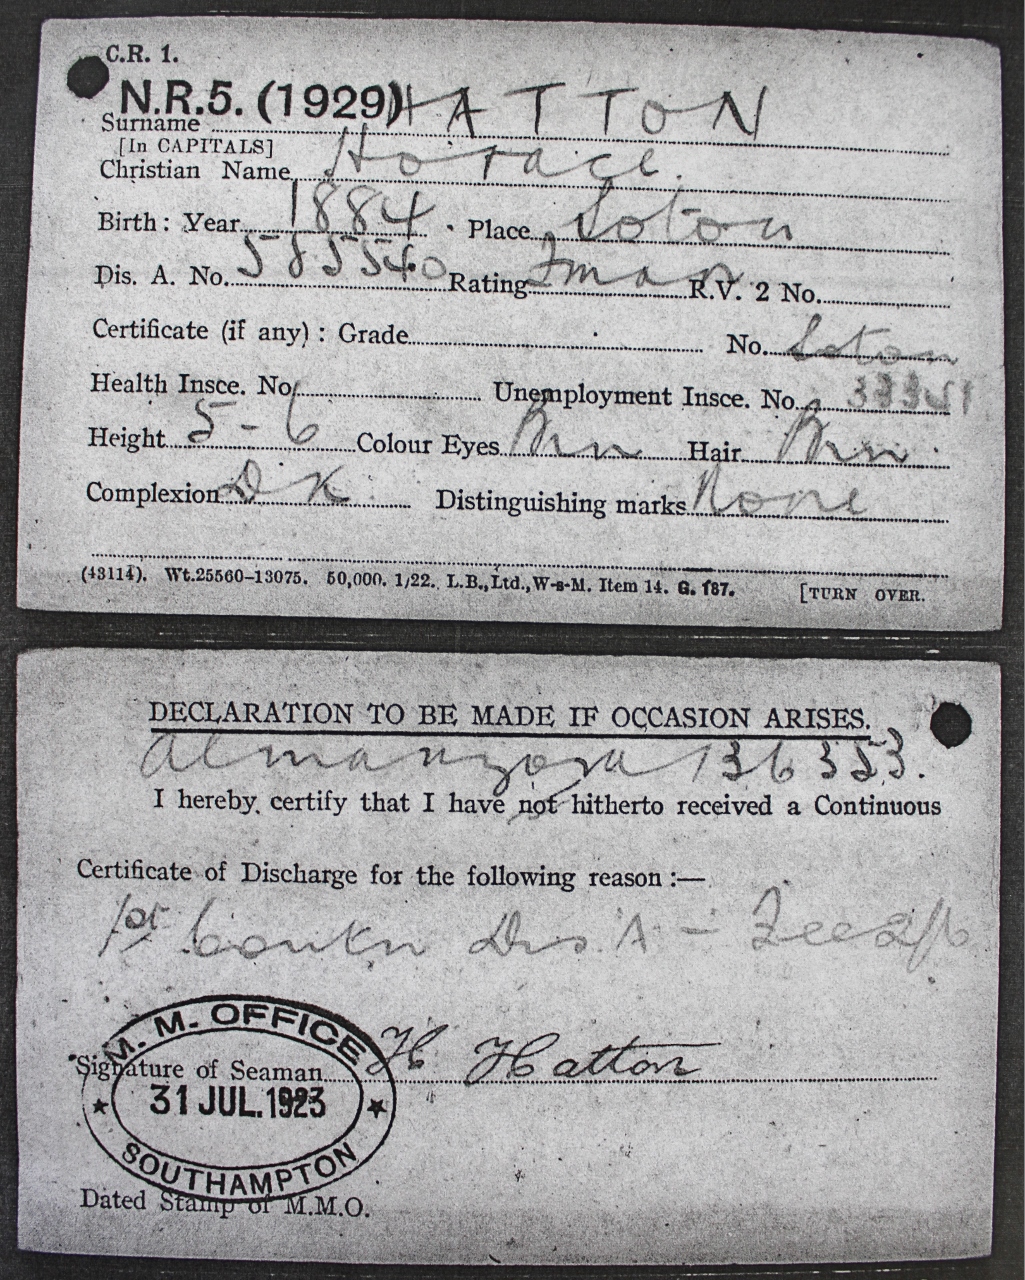 C.R. 1.
N.R.5. (1929)
Surname HATTON
[In CAPITALS]
Christian Name Horace.
Birth: Year 1884 . Place Soton
Dis. A. No. 585540 Rating Fman R.V. 2 No.
Certificate (if any): Grade No. Soton
Health Insce. No. Unemployment Insce. No.
Height 5-6 Colour Eyes Brn Hair Brn
Complexion DK Distinguishing marks None
(43114). Wt.25560-13075. 50,000. 1/22. L.B.,Ltd.,W-s-M. Item 14. G. 187. [TURN OVER.
DECLARATION TO BE MADE IF OCCASION ARISES.
Almanzora 136353.
I hereby certify that I have not hitherto received a Continuous
Certificate of Discharge for the following reason:—
1st Contn Dis. A - Fee 2/6
M. M. OFFICE
H Hatton
Signature of Seaman
31 JUL. 1923
SOUTHAMPTON
Dated Stamp of M.M.O.